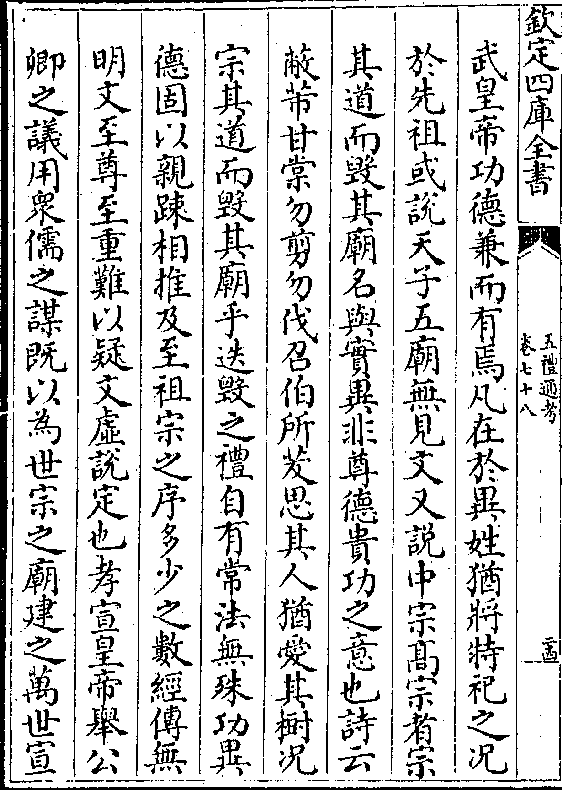 欽定四庫全書
五禮通考
卷七十八
二十四
武皇帝功德兼而有焉凡在於異姓猶將特祀之况
於先祖或說天子五廟無見文又說中宗髙宗者宗
其道而毀其廟名與實異非尊德貴功之意也詩云
蔽芾甘棠勿剪勿伐召伯所茇思其人猶愛其樹况
宗其道而毀其廟乎迭毀之禮自有常法無殊功異
德固以親疎相推及至祖宗之序多少之數經傳無
明文至尊至重難以疑文虛說定也孝宣皇帝舉公
卿之議用衆儒之謀既以為世宗之廟建之萬世宣